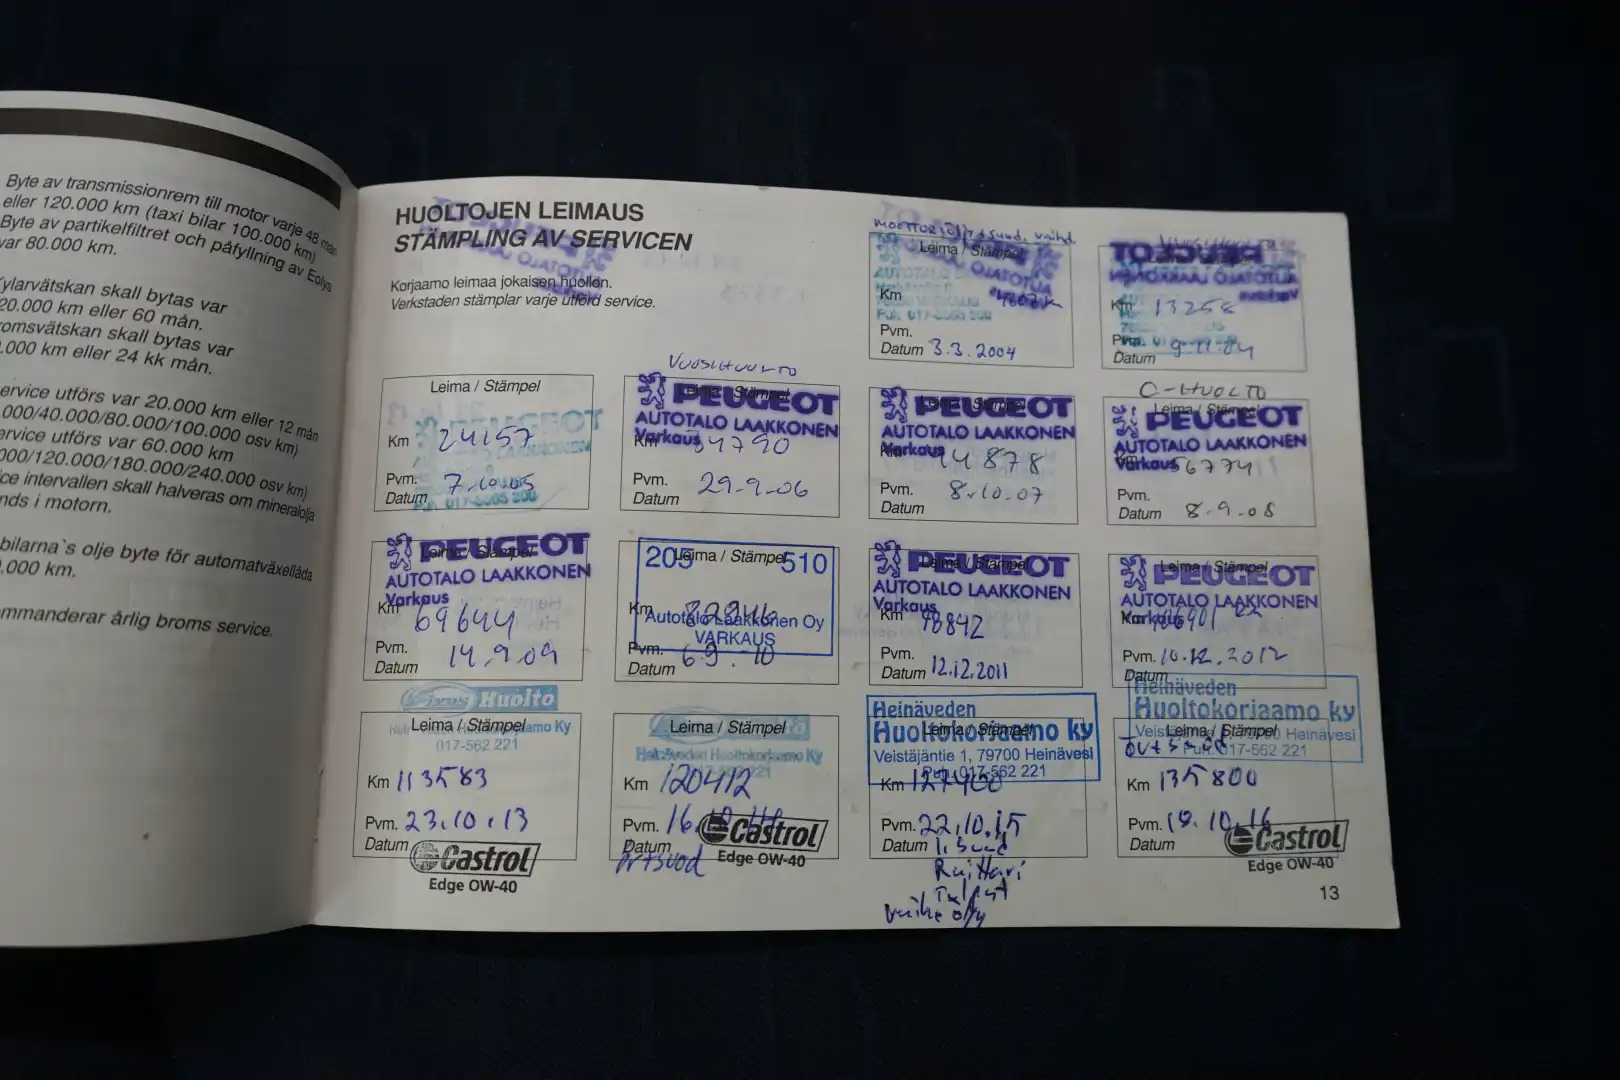 Byte av transmissionrem till motor varje 48 mån
eller 120.000 km (taxi bilar 100.000 km)
Byte av partikelfiltret och påfyllning av Eolys
var 80.000 km.
ylarvätskan skall bytas var
20.000 km eller 60 mån.
omsvätskan skall bytas var
.000 km eller 24 kk mån.
ervice utförs var 20.000 km eller 12 mån
000/40.000/80.000/100.000 osv km)
ervice utförs var 60.000 km
000/120.000/180.000/240.000 osv km)
ce intervallen skall halveras om mineralolja
nds i motorn.
bilarna`s olje byte för automatväxellåda
.000 km.
mmanderar årlig broms service.
HUOLTOJEN LEIMAUS
STÄMPLING AV SERVICEN
Korjaamo leimaa jokaisen huollon.
Verkstaden stämplar varje utförd service.
Leima / Stämpel
Km
Pvm.
Datum 3.3.2004
PEUGEOT
Km 13258
Pvm.
Datum 9.11.04
Leima / Stämpel
PEUGEOT
Km 24157
Pvm.
Datum 7.10.05
VUOSIHUOLTO
Leima / Stämpel
PEUGEOT
AUTOTALO LAAKKONEN
Varkaus
Km 34790
Pvm.
Datum 29.9.06
PEUGEOT
AUTOTALO LAAKKONEN
Varkaus
44878
Pvm.
Datum 8.10.07
C-HUOLTO
Leima / Stämpel
PEUGEOT
AUTOTALO LAAKKONEN
Varkaus
56774
Pvm.
Datum 8.9.08
Leima / Stämpel
PEUGEOT
AUTOTALO LAAKKONEN
Varkaus
Km 69644
Pvm.
Datum 14.9.09
205 Leima / Stämpel 510
Km
Autotalo Laakkonen Oy
VARKAUS
Pvm.
Datum 6.9.-10
Leima / Stämpel
PEUGEOT
AUTOTALO LAAKKONEN
Varkaus
Km 98842
Pvm.
Datum 12.12.2011
Leima / Stämpel
PEUGEOT
AUTOTALO LAAKKONEN
Varkaus
Pvm. 10.12.2012
Datum
Huolto
Leima / Stämpel
017-562 221
Km 113583
Pvm. 23.10.13
Datum
Castrol
Edge OW-40
Leima / Stämpel
Heinäveden Huoltokorjaamo Ky
Km 120412
Pvm. 16.
Datum
Castrol
Edge OW-40
Heinäveden
Huoltokorjaamo ky
Leima / Stämpel
Veistäjäntie 1, 79700 Heinävesi
Puh. 017-562 221
Km 127400
Pvm. 22.10.15
Datum
Heinäveden
Huoltokorjaamo ky
Leima / Stämpel
Puh. 017-562 221
Km 135800
Pvm. 19.10.16
Datum
Castrol
Edge OW-40
13